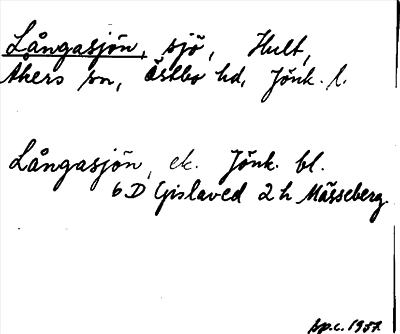 Långasjön, sjö, Hult,
Åkers sn, Östbo hd, Jönk. l.
Långasjön, ek. Jönk. bl.
6D Gislaved 2h Mässeberg
sp.c. 1957